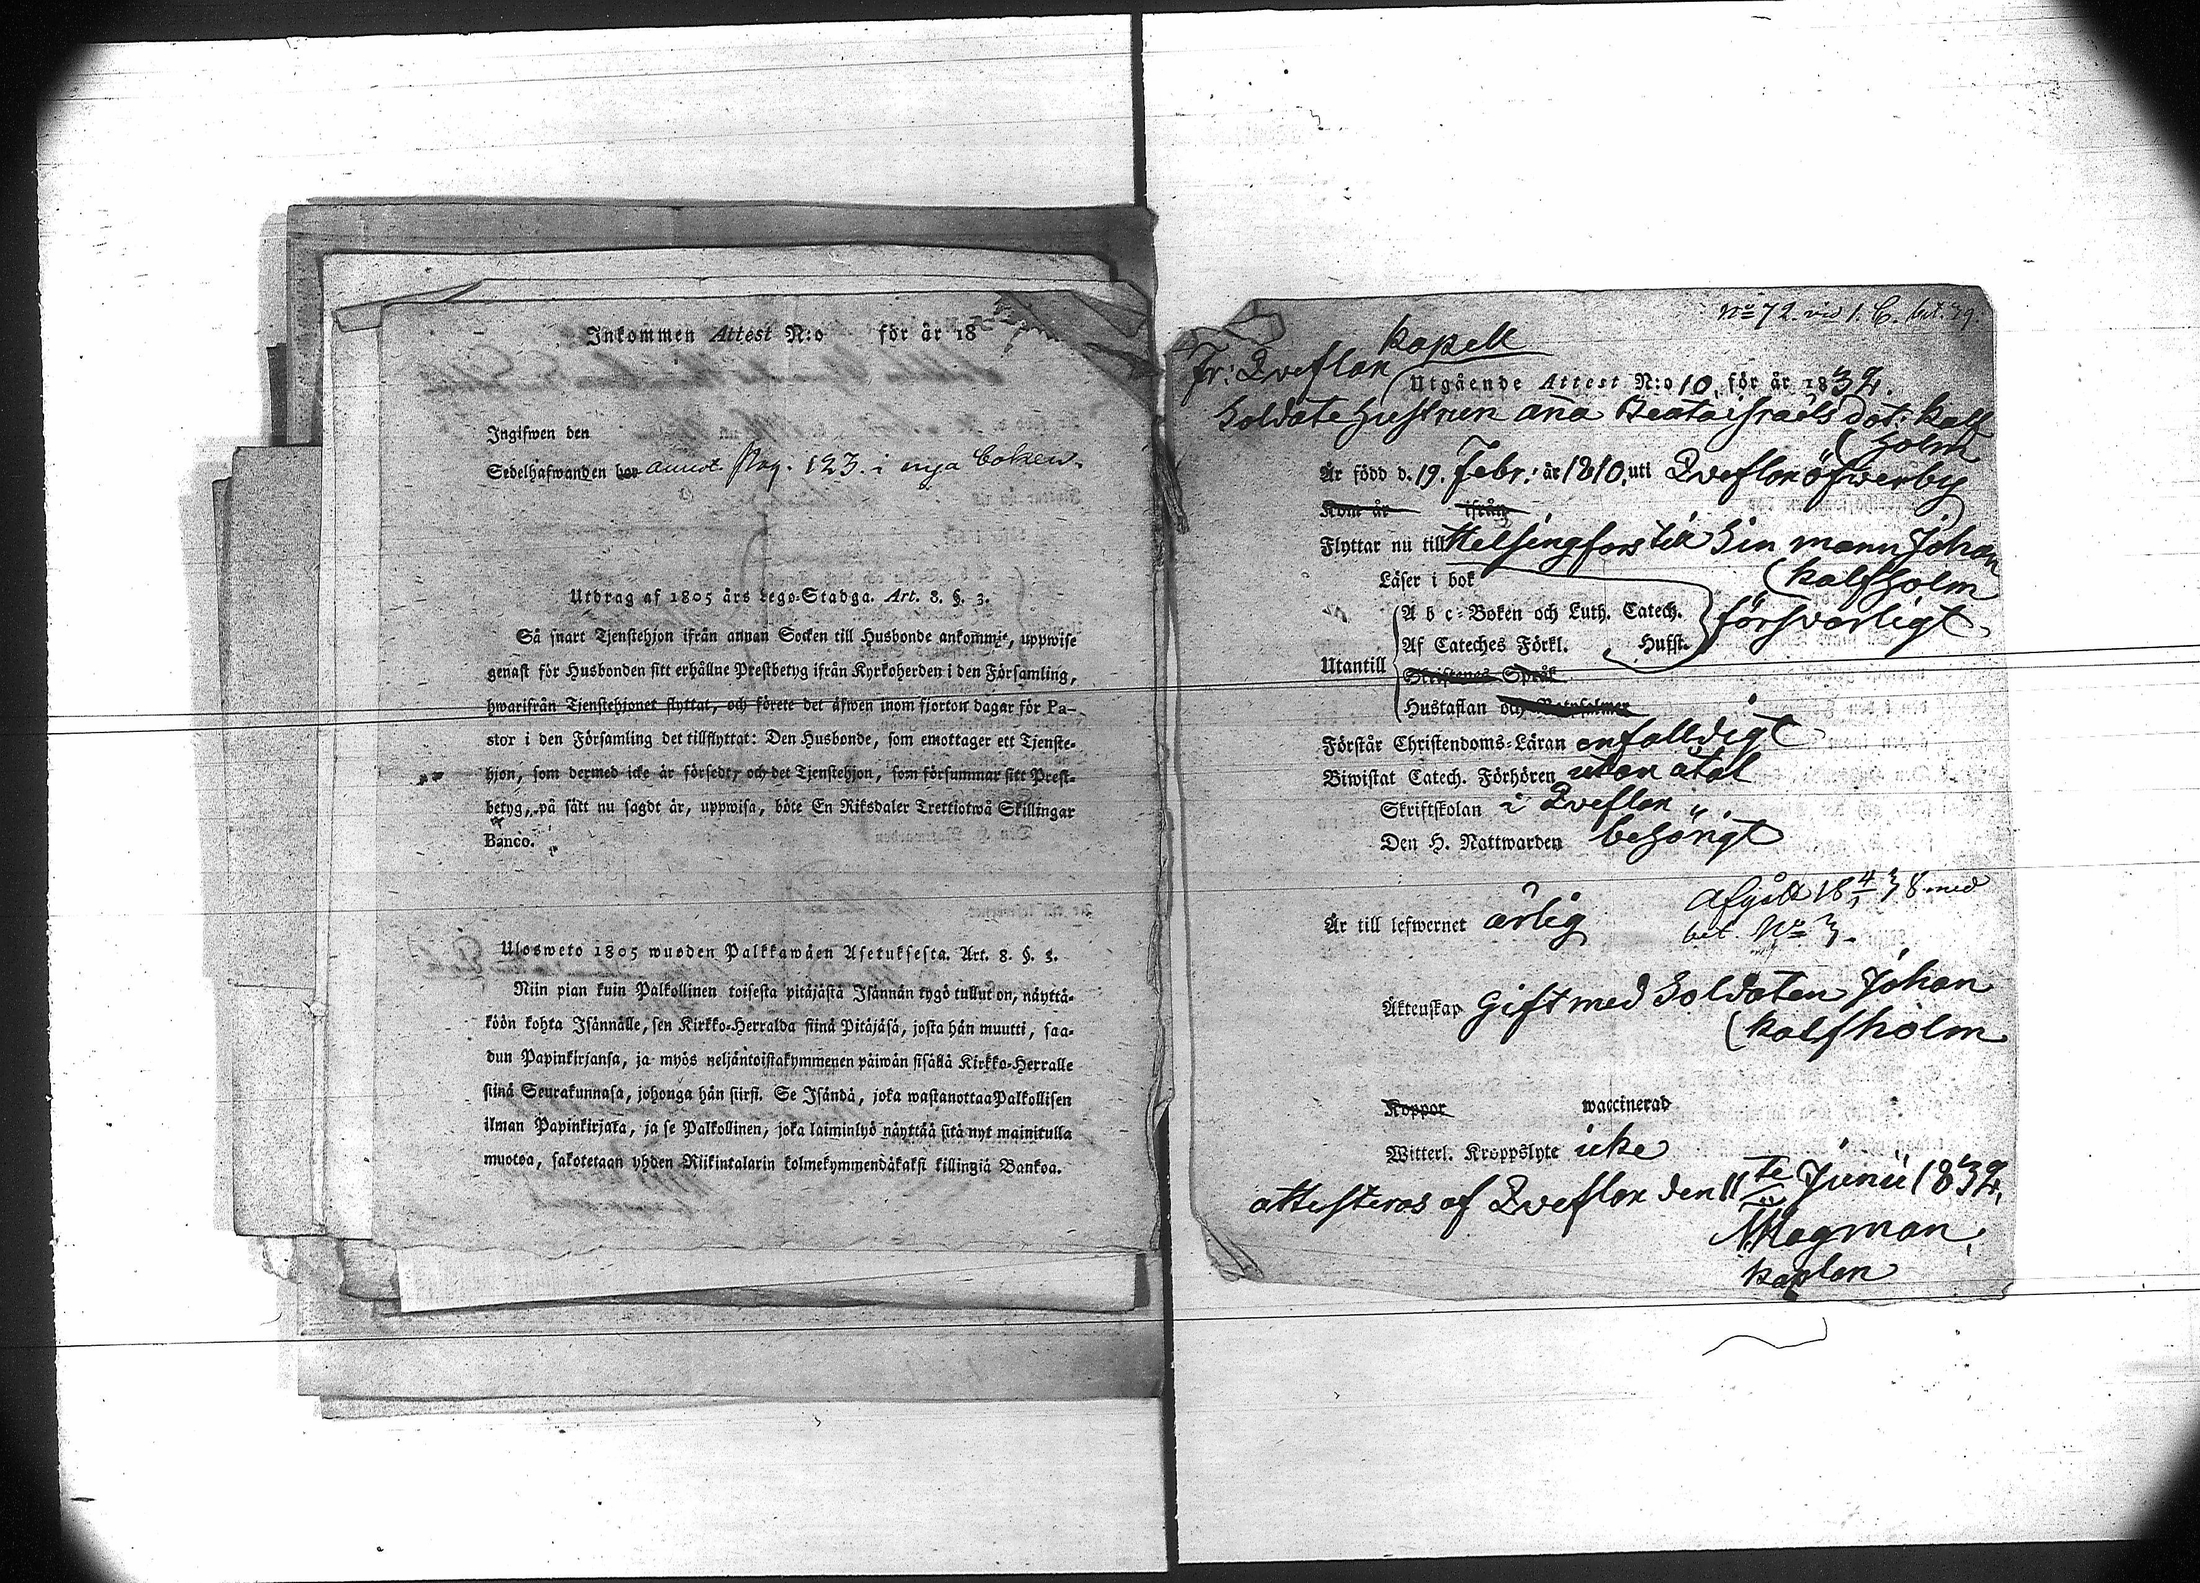 Inkommen Attest N:o för år 18
Ingifwen den
Sedelhafwanden har annot Pag. 123. i nya boken.
Utdrag af 1805 års Lego-Stadga. Art. 8. §. 3.
Så snart Tjenstehjon ifrån annan Socken till Husbonde ankommit, uppwise
genast för Husbonden sitt erhållne Prestbetyg ifrån Kyrkoherden i den Församling,
hwarifrån Tjenstehjonet flyttat, och förete det äfwen inom fjorton dagar för Pa-
stor i den Församling det tillflyttat: Den Husbonde, som emottager ett Tjenste-
hjon, som dermed icke är försedt, och det Tjenstehjon, som försummar sitt Prest-
betyg, på sätt nu sagdt är, uppwisa, böte En Riksdaler Trettiotwå Skillingar
Banco.
Ulosweto 1805 wuoden Palkkawäen Asetuksesta. Art. 8. §. 3.
Niin pian kuin Palkollinen toisesta pitäjästä Isännän tygö tullut on, näyttä-
köön kohta Isännälle, sen Kirkko-Herralda siinä Pitäjäsä, josta hän muutti, saa-
dun Papinkirjansa, ja myös neljäntoistakymmenen päiwän sisällä Kirkko-Herralle
siinä Seurakunnasa, johonga hän siirsi. Se Isändä, joka wastanottaa Palkollisen
ilman Papinkirjata, ja se Palkollinen, joka laiminlyö näyttää sitä nyt mainitulla
muotoa, sakotetaan yhden Riikintalarin kolmekymmendäkaksi killingiä Bankoa.
No 72. vid l. C. bet. 39.
kapell
Fr: Qveflax Utgående Attest N:o 10. för år 1832.
Soldate Hustrun Aña Beata Israels dot: Kalf
(holm
Är född d. 19. Febr: år 1810. uti Qveflax öfwerby
Kom år ifrån
Flyttar nu till Helsingfors till Sin mann Johan
(Kalfholm
Läser i bok
A b c-Boken och Luth. Catech. försvarligt
Af Cateches Förkl. Husst.
Utantill Skriftenes Språk
Hustaflan och Botpsalmer
Förstår Christendoms-Läran enfalldigt
Biwistat Catech. Förhören utan åtal
Skriftskolan i Qveflax
Den H. Nattwarden behörigt
Är till lefwernet ärlig Afgått 18 4/3 38 med
bet. No 3.
Äktenskap Gift med Soldaten Johan
(Kalfholm
Koppor waccinerad
Witterl. Kroppslyte icke
attesteras af Qveflax den 11te Junii 1832.
Hagman.
Kaplan